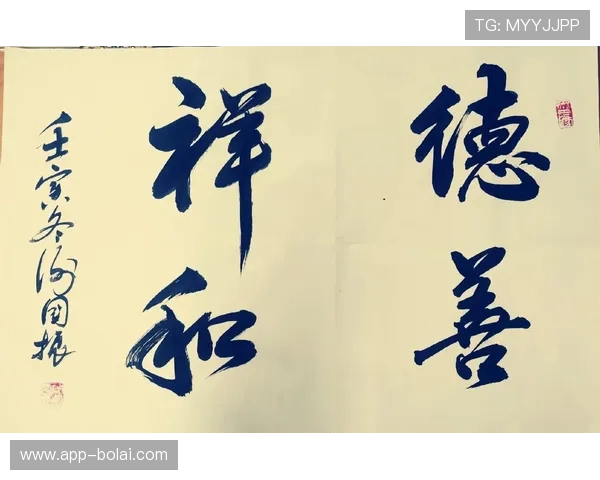 TG: MYYJJPP
德善
祥和
壬寅冬国振
www.app-bolai.com